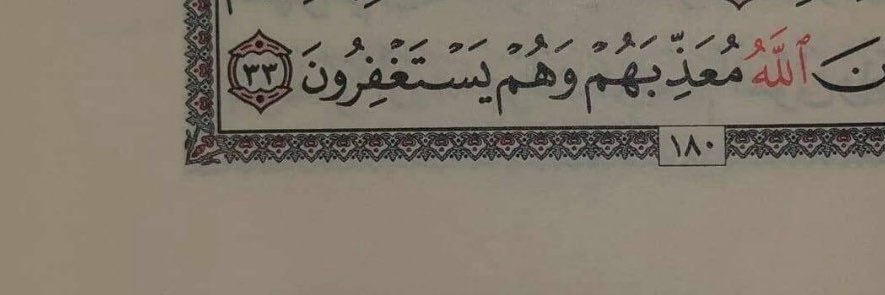 ٱللَّهُ مُعَذِّبَهُمْ وَهُمْ يَسْتَغْفِرُونَ ٣٣
١٨٠